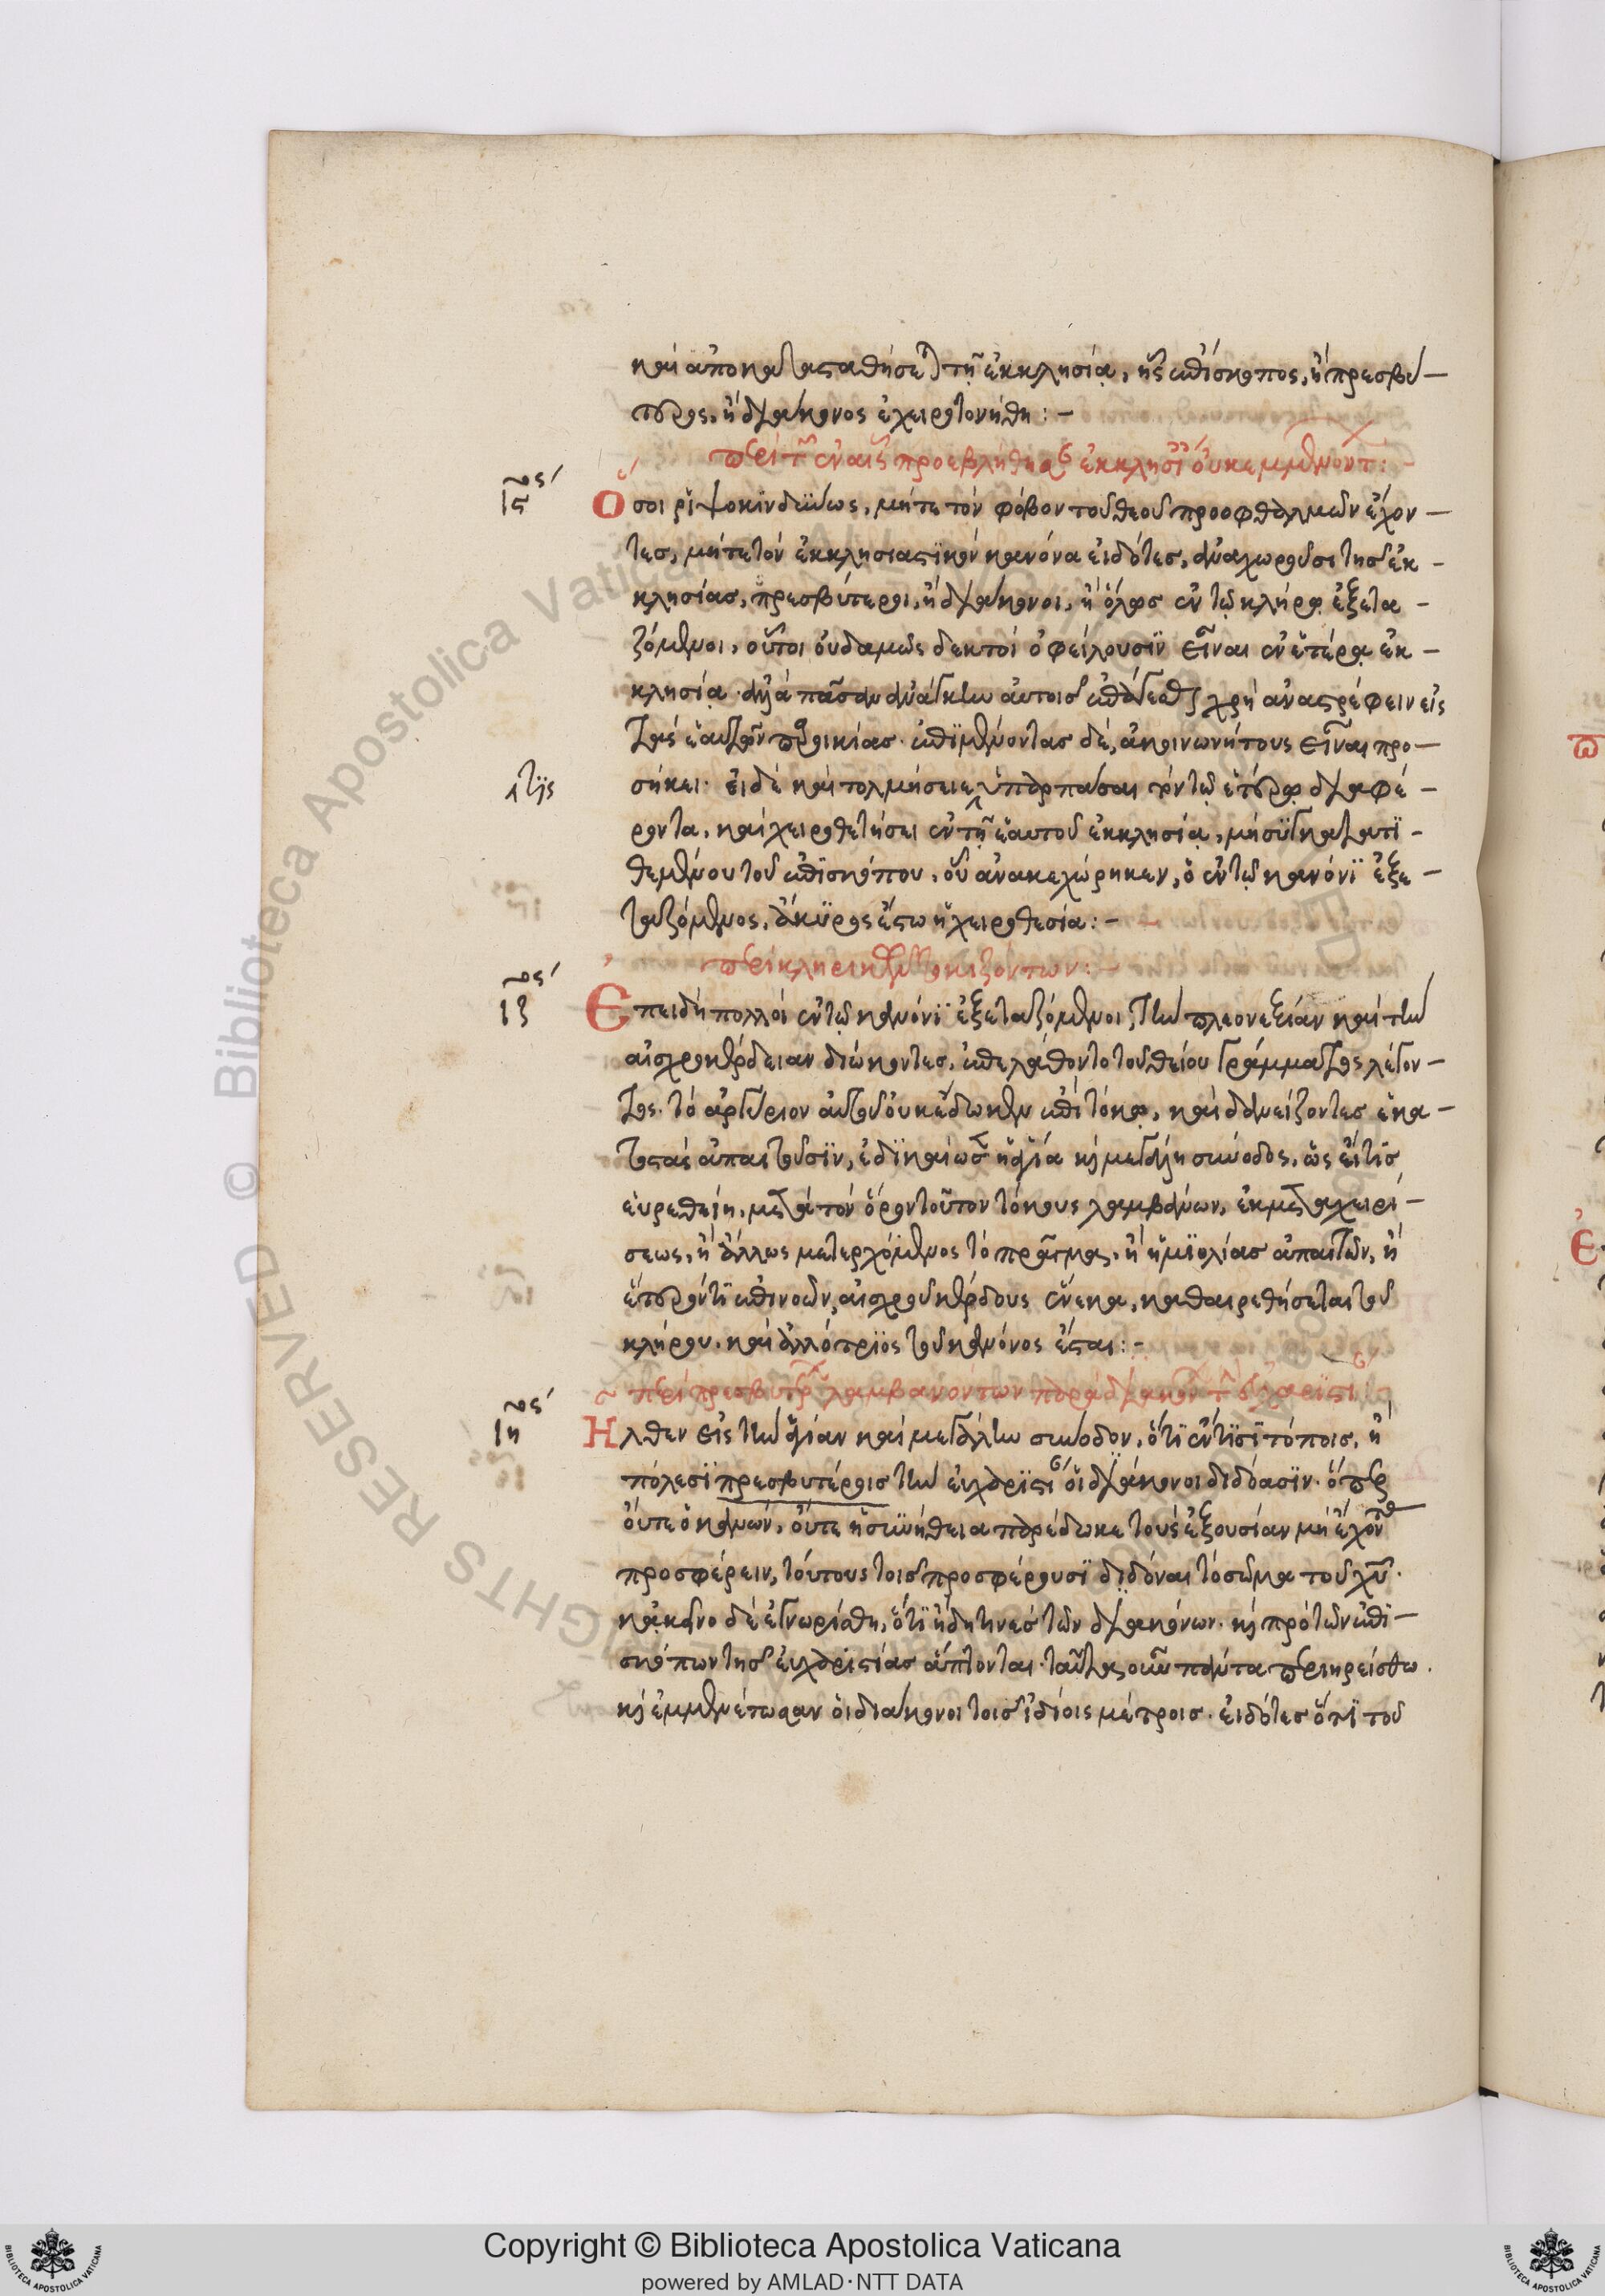 καὶ ἀποκαταςαθήσεται τῇ ἐκκλησίᾳ, ἧς ἐπίσκοπος, ἢ πρεσβύ –
τερος, ἢ διάκονος ἐχειροτονήθη : –
περὶ τῶν ἐν αἷς προεβλήθησαν ἐκκλησίαις οὐκ ἐμμενόντων : –
ις΄ Ὅσοι ῥιψοκινδύνως, μήτε τὸν φόβον τοῦ θεοῦ πρὸ ὀφθαλμῶν ἔχον –
τες, μήτε τὸν ἐκκλησιαςικὸν κανόνα εἰδότες, ἀναχωροῦσι τῆς ἐκ –
κλησίας, πρεσβύτεροι, ἢ διάκονοι, ἢ ὅλως ἐν τῷ κλήρῳ ἐξετα –
ζόμενοι, οὗτοι οὐδαμῶς δεκτοὶ ὀφείλουσιν εἶναι ἐν ἑτέρᾳ ἐκ –
κλησίᾳ. ἀλλὰ πᾶσαν ἀνάγκην αὐτοῖς ἐπάγεσθαι χρὴ ἀναςρέφειν εἰς
τὰς ἑαυτῶν παροικίας. ἐπιμένοντας δὲ, ἀκοινωνήτους εἶναι προ –
σήκει. εἰ δὲ καὶ τολμήσειε ὑπαρπάσαι τὸν τῷ ἑτέρῳ διαφέ –
τὶς
ροντα, καὶ χειροθετήσει ἐν τῇ ἑαυτοῦ ἐκκλησίᾳ, μὴ συγκατατι –
θεμένου τοῦ ἐπισκόπου, οὗ ἀνακεχώρηκεν, ὁ ἐν τῷ κανόνι ἐξε –
ταζόμενος, ἄκυρος ἔςω ἡ χειροθεσία : –
περὶ κληρικῶν τοκιζόντων : –
ιζ΄ Ἐπειδὴ πολλοὶ ἐν τῷ κανόνι ἐξεταζόμενοι, τὴν πλεονεξίαν καὶ τὴν
αἰσχροκέρδειαν διώκοντες, ἐπελάθοντο τοῦ θείου γράμματος λέγον –
τος. τὸ ἀργύριον αὐτοῦ οὐκ ἔδωκεν ἐπὶ τόκῳ, καὶ δανείζοντες ἑκα –
τοςὰς ἀπαιτοῦσιν, ἐδικαίωσεν ἡ ἁγία κ μεγάλη σύνοδος, ὡς εἴ τις
εὑρεθείη, μετὰ τὸν ὅρον τοῦτον τόκους λαμβάνων, ἐκ μεταχειρί –
σεως, ἢ ἄλλως μετερχόμενος τὸ πρᾶγμα, ἢ ἡμιολίας ἀπαιτῶν, ἢ
ἕτερόν τι ἐπινοῶν, αἰσχροῦ κέρδους ἕνεκα, καθαιρεθήσεται τοῦ
κλήρου. καὶ ἀλλότριος τοῦ κανόνος ἔςαι : –
περὶ πρεσβυτέρων λαμβανόντων παρὰ διακόνων τῆς εὐχαριςίας
ιη΄ Ἦλθεν εἰς τὴν ἁγίαν καὶ μεγάλην σύνοδον, ὅτι ἔν τισι τόποις, ἢ
πόλεσι πρεσβυτέροις τὴν εὐχαριςίαν οἱ διάκονοι διδόασιν. ὅπερ
οὔτε ὁ κανὼν, οὔτε ἡ συνήθεια παρέδωκε τοὺς ἐξουσίαν μὴ ἔχοντας
προσφέρειν, τούτους τοῖς προσφέρουσι διδόναι τὸ σῶμα τοῦ χῦ.
κἀκεῖνο δὲ ἐγνωρίσθη, ὅτι ἤδη τινὲς τῶν διακόνων. κ πρὸ τῶν ἐπι –
σκόπων τῆς εὐχαριςίας ἅπτονται. ταῦτα οὖν πάντα περιηρείσθω.
κ ἐμμενέτωσαν οἱ διάκονοι τοῖς ἰδίοις μέτροις. εἰδότες ὅτι τοῦ